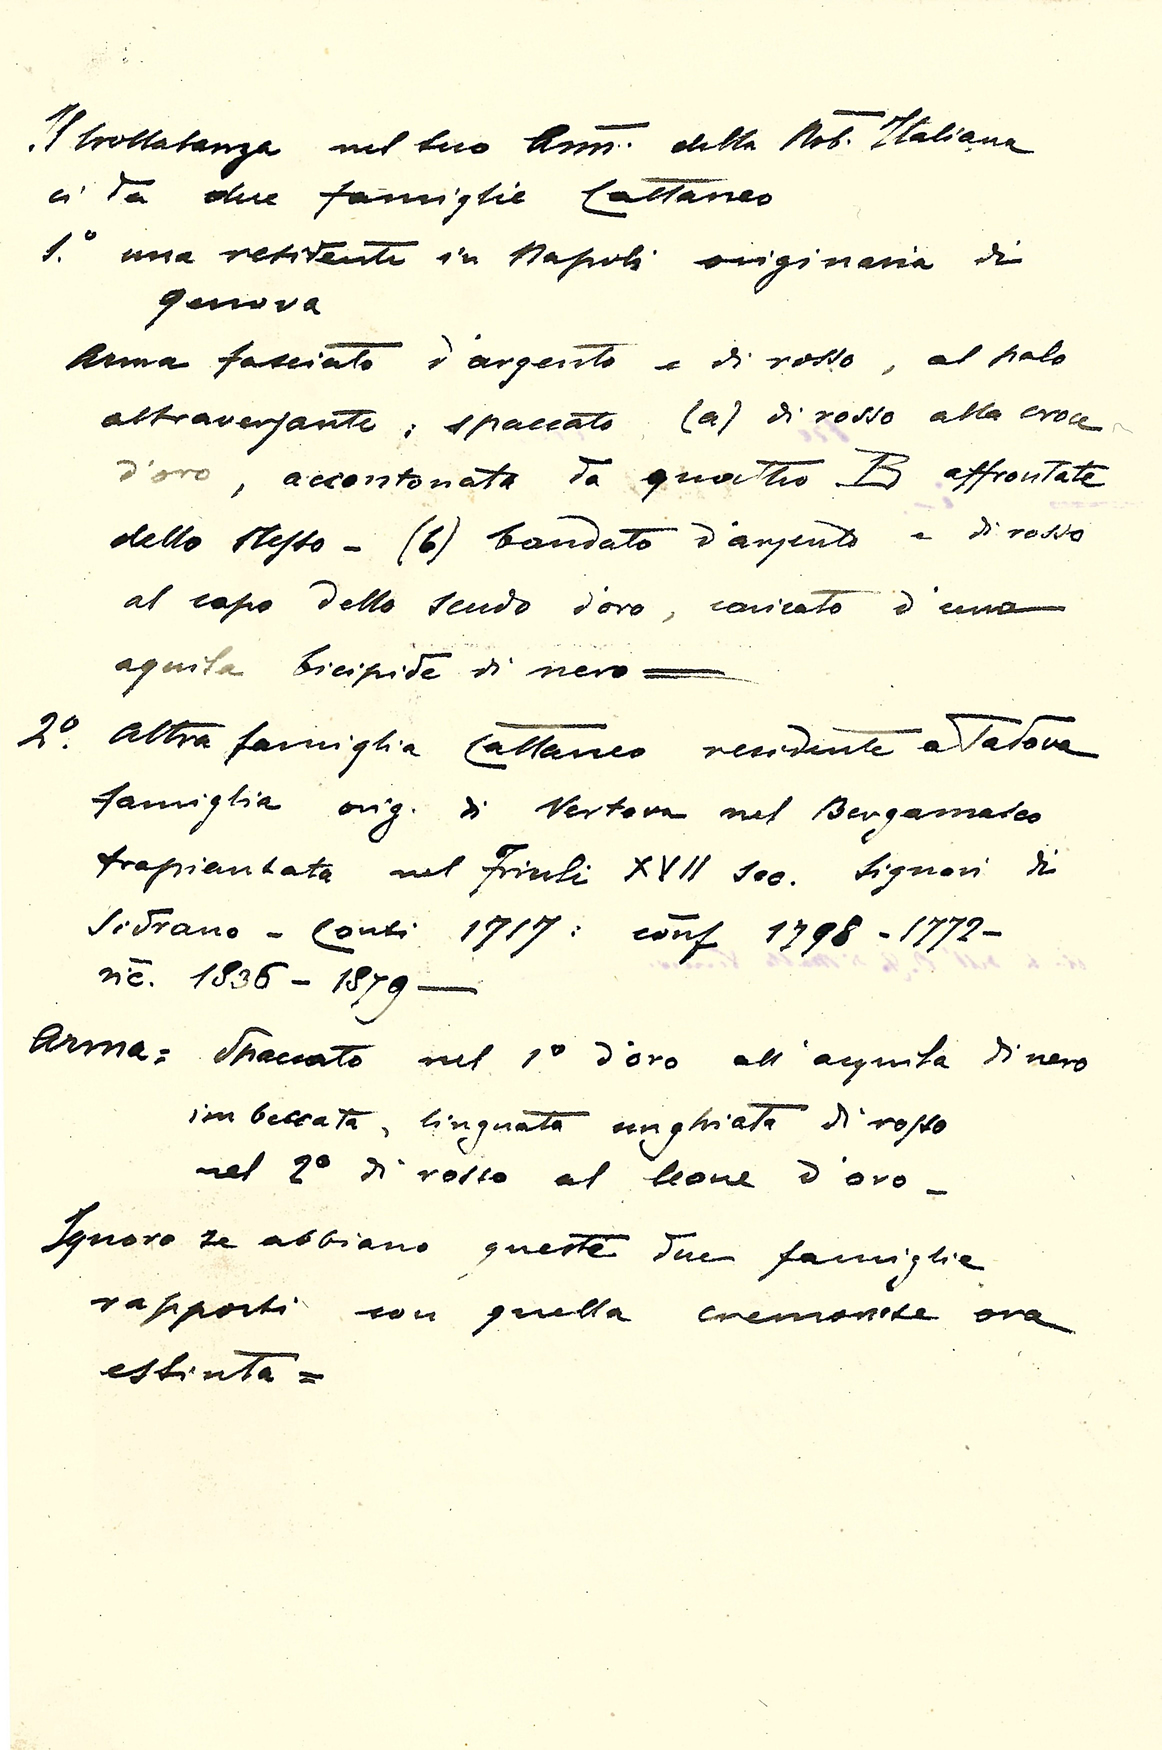 Il Crollalanza nel suo Ann. della Nob. Italiana
ci da due famiglie Cattaneo
1.° una residente in Napoli originaria di
Genova
Arma fasciato d'argento e di rosso, al palo
attraversante; spaccato (a) di rosso alla croce
d'oro, accantonata da quattro B affrontate
dello stesso - (b) bandato d'argento e di rosso
al capo dello scudo d'oro, caricato d'una
aquila bicipide di nero =
2°. Altra famiglia Cattaneo residente a Padova
famiglia orig. di Vertova nel Bergamasco
trapiantata nel Friuli XVII sec. Signori di
Sidrano - Conti 1717: conf 1798 - 1772 -
ric. 1836 - 1879 —
Arma = Spaccato nel 1° d'oro all'acquila di nero
imbeccata, linguata unghiata di rosso
nel 2° di rosso al leone d'oro -
Ignoro se abbiano queste due famiglie
rapporti con quella cremonese ora
estinta =